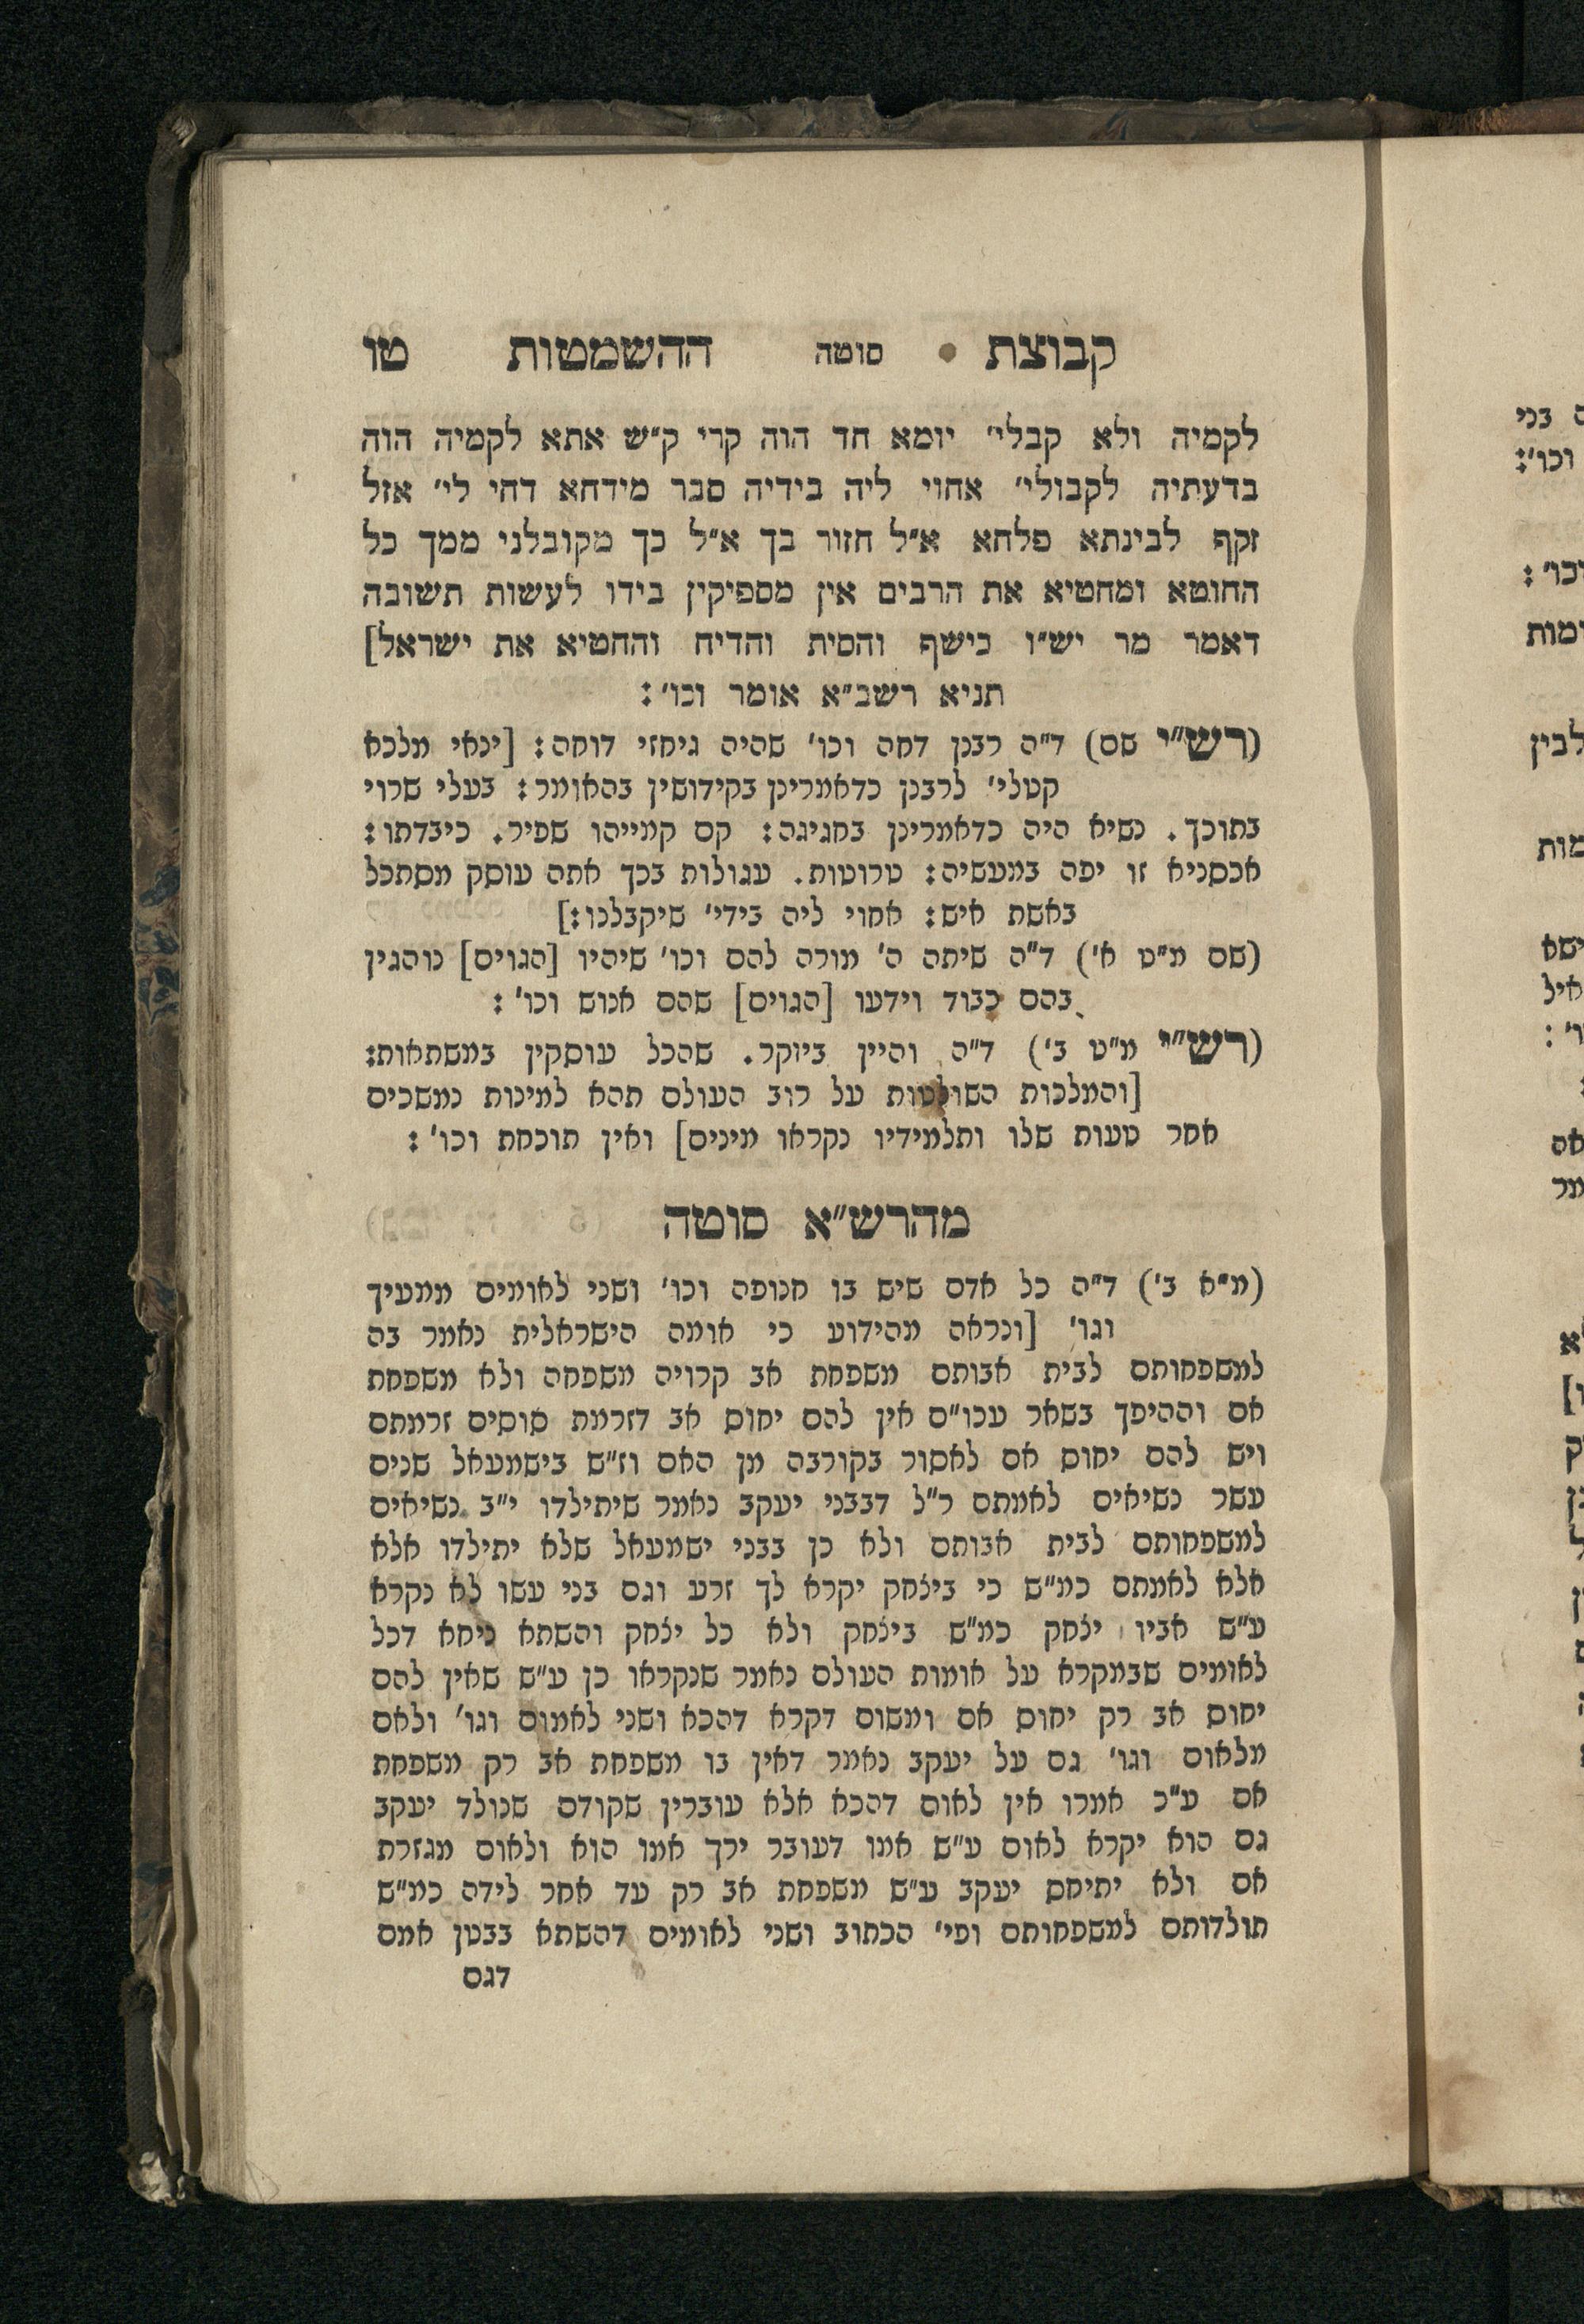 קבוצת סוטה ההשמטות טו
לקמיה ולא קבלי׳ יומא חד הוה קרי ק״ש אתא לקמיה הוה
בדעתיה לקבולי׳ אחוי ליה בידיה סבר מידחא דחי לי׳ אזל
זקף לבינתא פלחא א״ל חזור בך א״ל כך מקובלני ממך כל
החוטא ומחטיא את הרבים אין מספיקין בידו לעשות תשובה
דאמר מר יש״ו כישף והסית והדיח והחטיא את ישראל]
תניא רשב״א אומר וכו׳:
(רש״י שם) ד״ה רבנן דמה וכו׳ שהיה גיחזי דוחה: [ינאי מלכא
קטלי׳ לרבנן כדאמרינן בקידושין בהאומר: בעלי שרוי
בתוכך. נשיא היה כדאמרינן בחגיגה: קם קמייהו שפיר. כיבדתו:
אכסניא זו יפה במעשיה: טרוטות. עגולות בכך אתה עוסק מסתכל
באשת איש: אחוי ליה בידי׳ שיקבלנו:]
(שם מ״ט א׳) ד״ה שיתה ה׳ מורה להם וכו׳ שיהיו [הגוים] נוהגין
בהם כבוד וידעו [הגוים] שהם אנוש וכו׳:
(רש״י מ״ט ב׳) ד״ה והיין ביוקר. שהכל עוסקין במשתאות:
[והמלכות השולטות על רוב העולם תהא למינות נמשכים
אחר טעות שלו ותלמידיו נקראו מינים] ואין תוכחת וכו׳:
מהרש״א סוטה
(מ״א ב׳) ד״ה כל אדם שיש בו חנופה וכו׳ ושני לאומים ממעיך
וגו׳ [ונראה מהידוע כי אומה הישראלית נאמר בה
למשפחותם לבית אבותם משפחת אב קרויה משפחה ולא משפחת
אם וההיפך בשאר עכו״ם אין להם יחוס אב דזרמת סוסים זרמתם
ויש להם יחוס אם לאסור בקורבה מן האם וז״ש בישמעאל שנים
עשר נשיאים לאמתם ר״ל דבבני יעקב נאמר שיתילדו י״ב נשיאים
למשפחותם לבית אבותם ולא כן בבני ישמעאל שלא יתילדו אלא
אלא לאמתם כמ״ש כי ביצחק יקרא לך זרע וגם בני עשו לא נקרא
ע״ש אביו יצחק כמ״ש ביצחק ולא כל יצחק והשתא ניחא דכל
לאומים שבמקרא על אומות העולם נאמר שנקראו כן ע״ש שאין להם
יחוס אב רק יחוס אם ומשום דקרא דהכא ושני לאמום וגו׳ ולאם
מלאום וגו׳ גם על יעקב נאמר דאין בו משפחת אב רק משפחת
אם ע״כ אמרו אין לאום דהכא אלא עוברין שקודם שנולד יעקב
גם הוא יקרא לאום ע״ש אמו דעובר ירך אמו הוא ולאום מגזרת
אם ולא יתיחס יעקב ע״ש משפחת אב רק עד אחר לידה כמ״ש
תולדותם למשפחותם ופי׳ הכתוב ושני לאומים דהשתא בבטן אמם
דגם